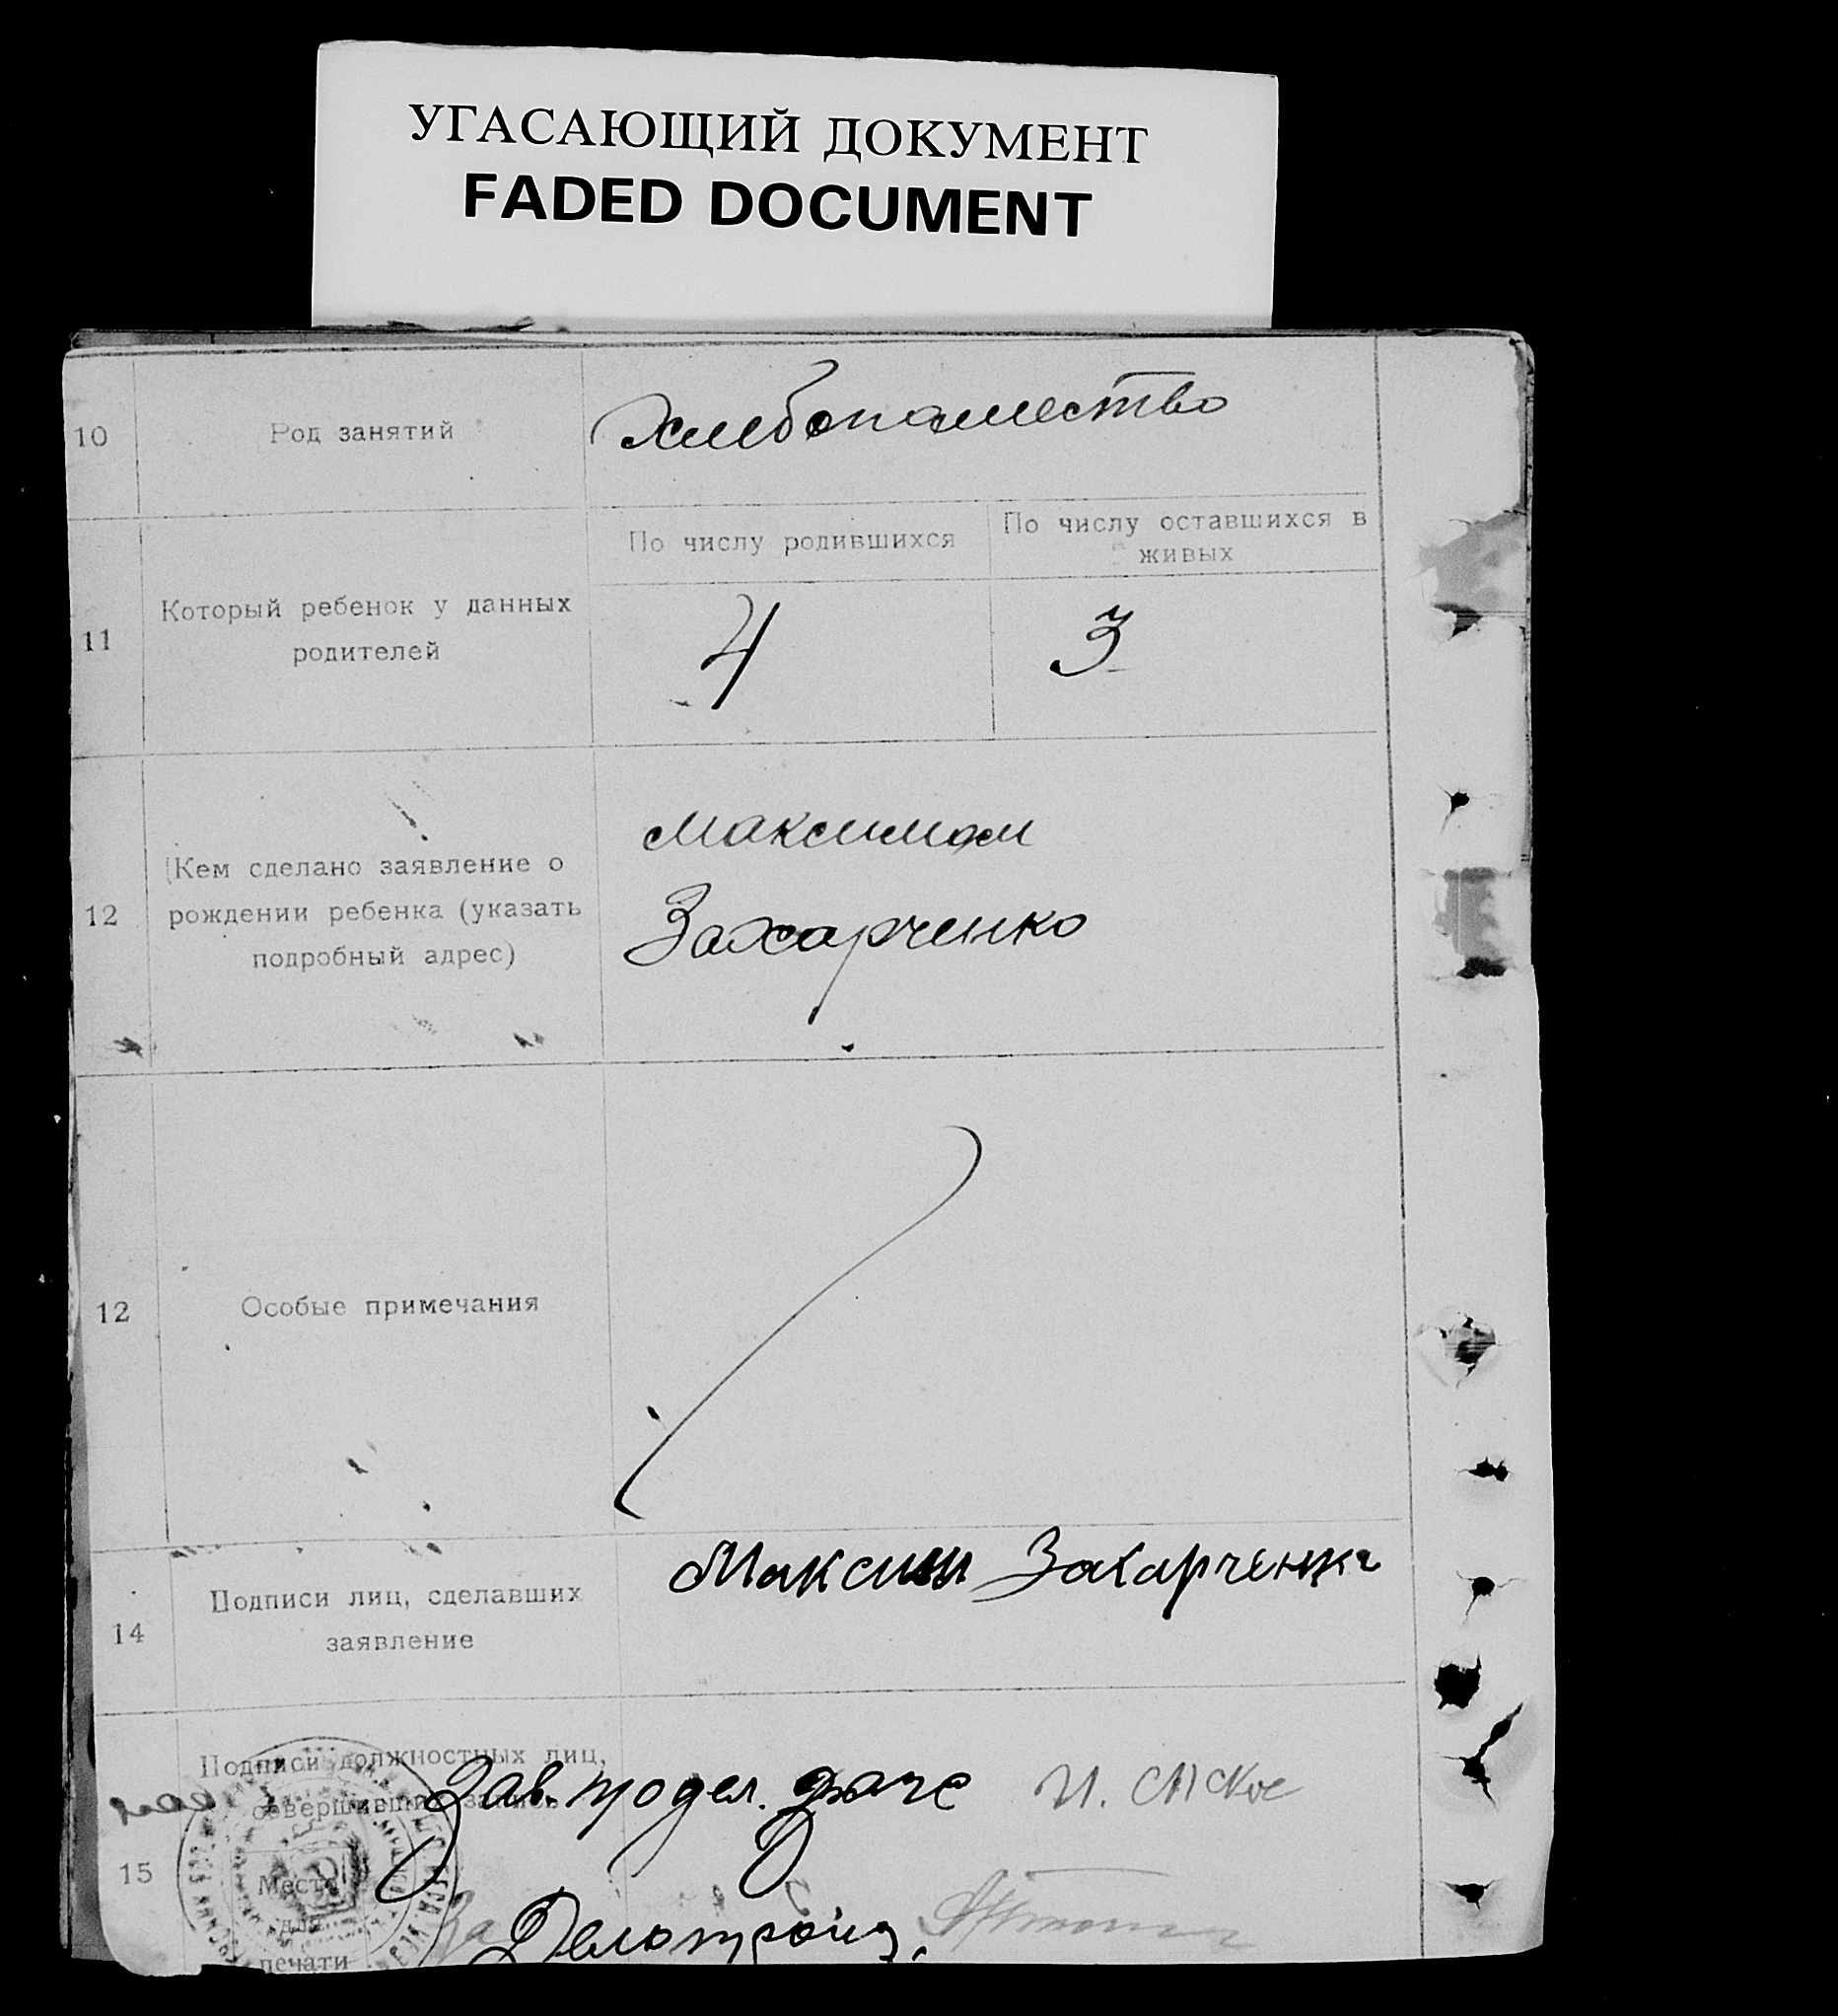 УГАСАЮЩИЙ ДОКУМЕНТ
FADED DOCUMENT
10 Род занятий Хлебопашество
По числу родившихся По числу оставшихся в
живых
11 Который ребенок у данных
родителей
4 3
Максимом
12 (Кем сделано заявление о
рождении ребенка (указать
подробный адрес)
Захарченко
12 Особые примечания
14 Подписи лиц, сделавших
заявление
Максим Захарченко
Подписи должностных лиц,
совершивших запись
Зав.
15 Место
для
печати
За Делопроиз.